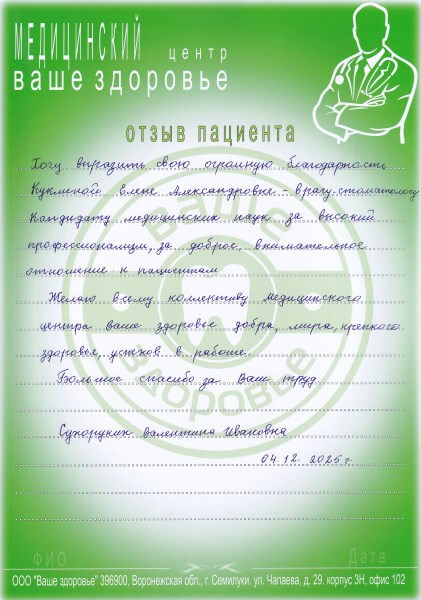 МЕДИЦИНСКИЙ центр
ваше здоровье
отзыв пациента
Хочу выразить свою огромную благодарность
Елене Александровне - врачу-стоматологу
Кандидату медицинских наук за высокий
профессионализм, за доброе, внимательное
отношение к пациентам
Желаю всему коллективу Медицинского
центра Ваше здоровье добра, мира, крепкого
здоровья, успехов в работе.
Большое спасибо за Ваш труд
Валентина Ивановна
04.12.2025 г.
Ваше
здоровье
ФИО
Дата
ООО "Ваше здоровье" 396900, Воронежская обл., г. Семилуки. ул. Чапаева, д. 29. корпус 3Н, офис 102